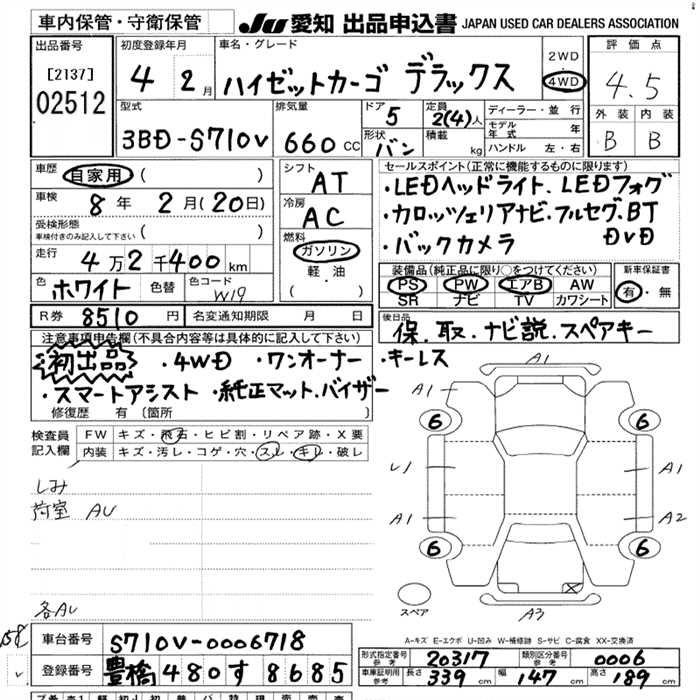 車内保管・守衛保管 JU 愛知 出品申込書 JAPAN USED CAR DEALERS ASSOCIATION
出品番号 初度登録年月 車名・グレード 2WD 評価点
[2137] 4 2月 ハイゼットカーゴ デラックス 4WD 4.5
02512 型式 排気量 ドア 定員 ディーラー・並行 外装 内装
3BD-S710V 660cc 5 2(4)人 モデル年式 年
形状 バン 積載 kg ハンドル 左・右 B B
車歴 自家用 ( ) シフト AT セールスポイント(正常に機能するものに限ります)
車検 8年 2月(20日) 冷房 AC ・LEDヘッドライト、LEDフォグ
受検形態 ・カロッツェリアナビ・フルセグ・BT
車検付きのみ記入して下さい ( ) 燃料 ガソリン ・バックカメラ DVD
走行 4万2千400km 軽・油 装備品(純正品に限り○をつけてください) 新車保証書
色 ホワイト 色替 色コード W19 ( ) PS PW エアB AW 有・無
SR ナビ TV カワシート
R券 8510円 名変通知期限 月 日 後日品
注意事項申告欄(不具合内容等は具体的に記入して下さい) 保.取.ナビ説.スペアキー
・初出品 ・4WD ・ワンオーナー ・キーレス
・スマートアシスト ・純正マット.バイザー
修復歴 有 〔箇所
検査員記入欄 FW キズ・飛石・ヒビ割・リペア跡・X要
内装 キズ・汚レ・コゲ・穴・スレ・キレ・破レ
A1
A1
6 6
しみ
荷室 AU
U1 A1
A1 A2
6 6
各AU
スペア A3
A-キズ E-エクボ U-凹み W-補修跡 S-サビ C-腐食 XX-交換済
車台番号 S710V-0006718
形式指定番号 参考 20317 類別区分番号 参考 0006
登録番号 豊橋 480す8685
車庫証明用 参考 長さ 339cm 幅 147cm 高さ 189cm